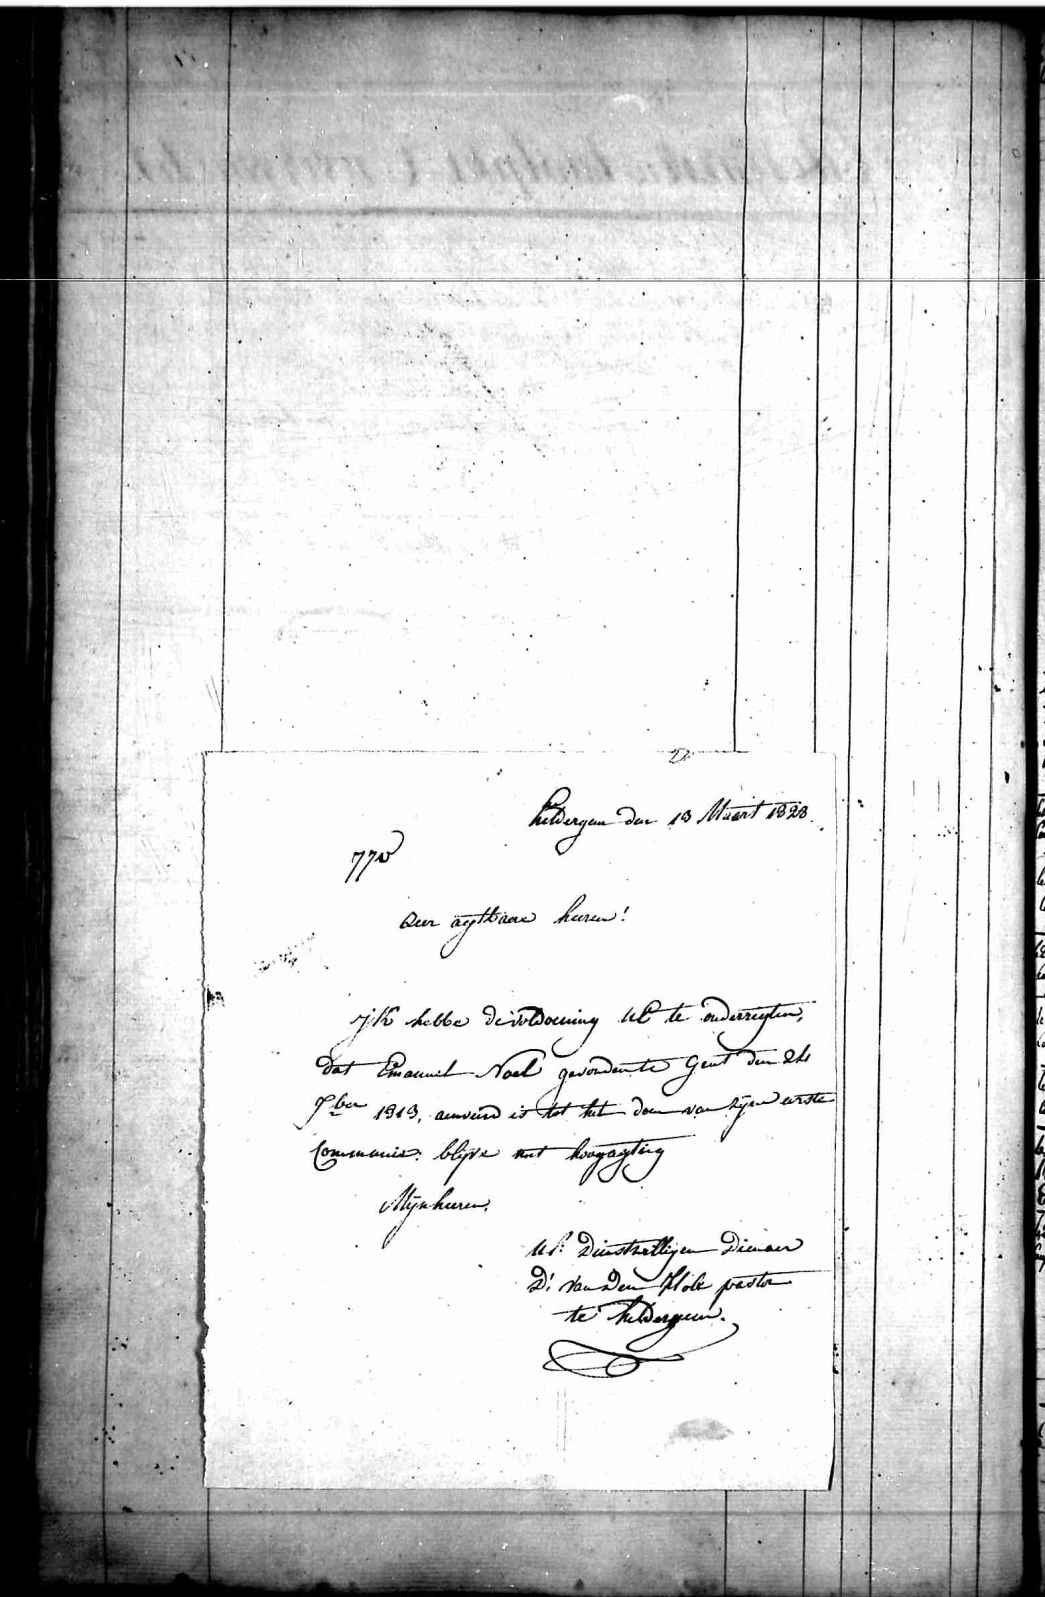 heldergem den 13 Maart 1828.
770
Eer agtbaere heeren!
Ik hebbe de voldoening UE te onderregten,
dat Emanuel Noel gevonden te Gent den 24
9ber 1813, aenveird is tot het doen van zijne eerste
Communie. blijve met hoogagting
Mijnheeren.
UE. Dienstwilligen Dienaer
D. van den pastor
te heldergem.